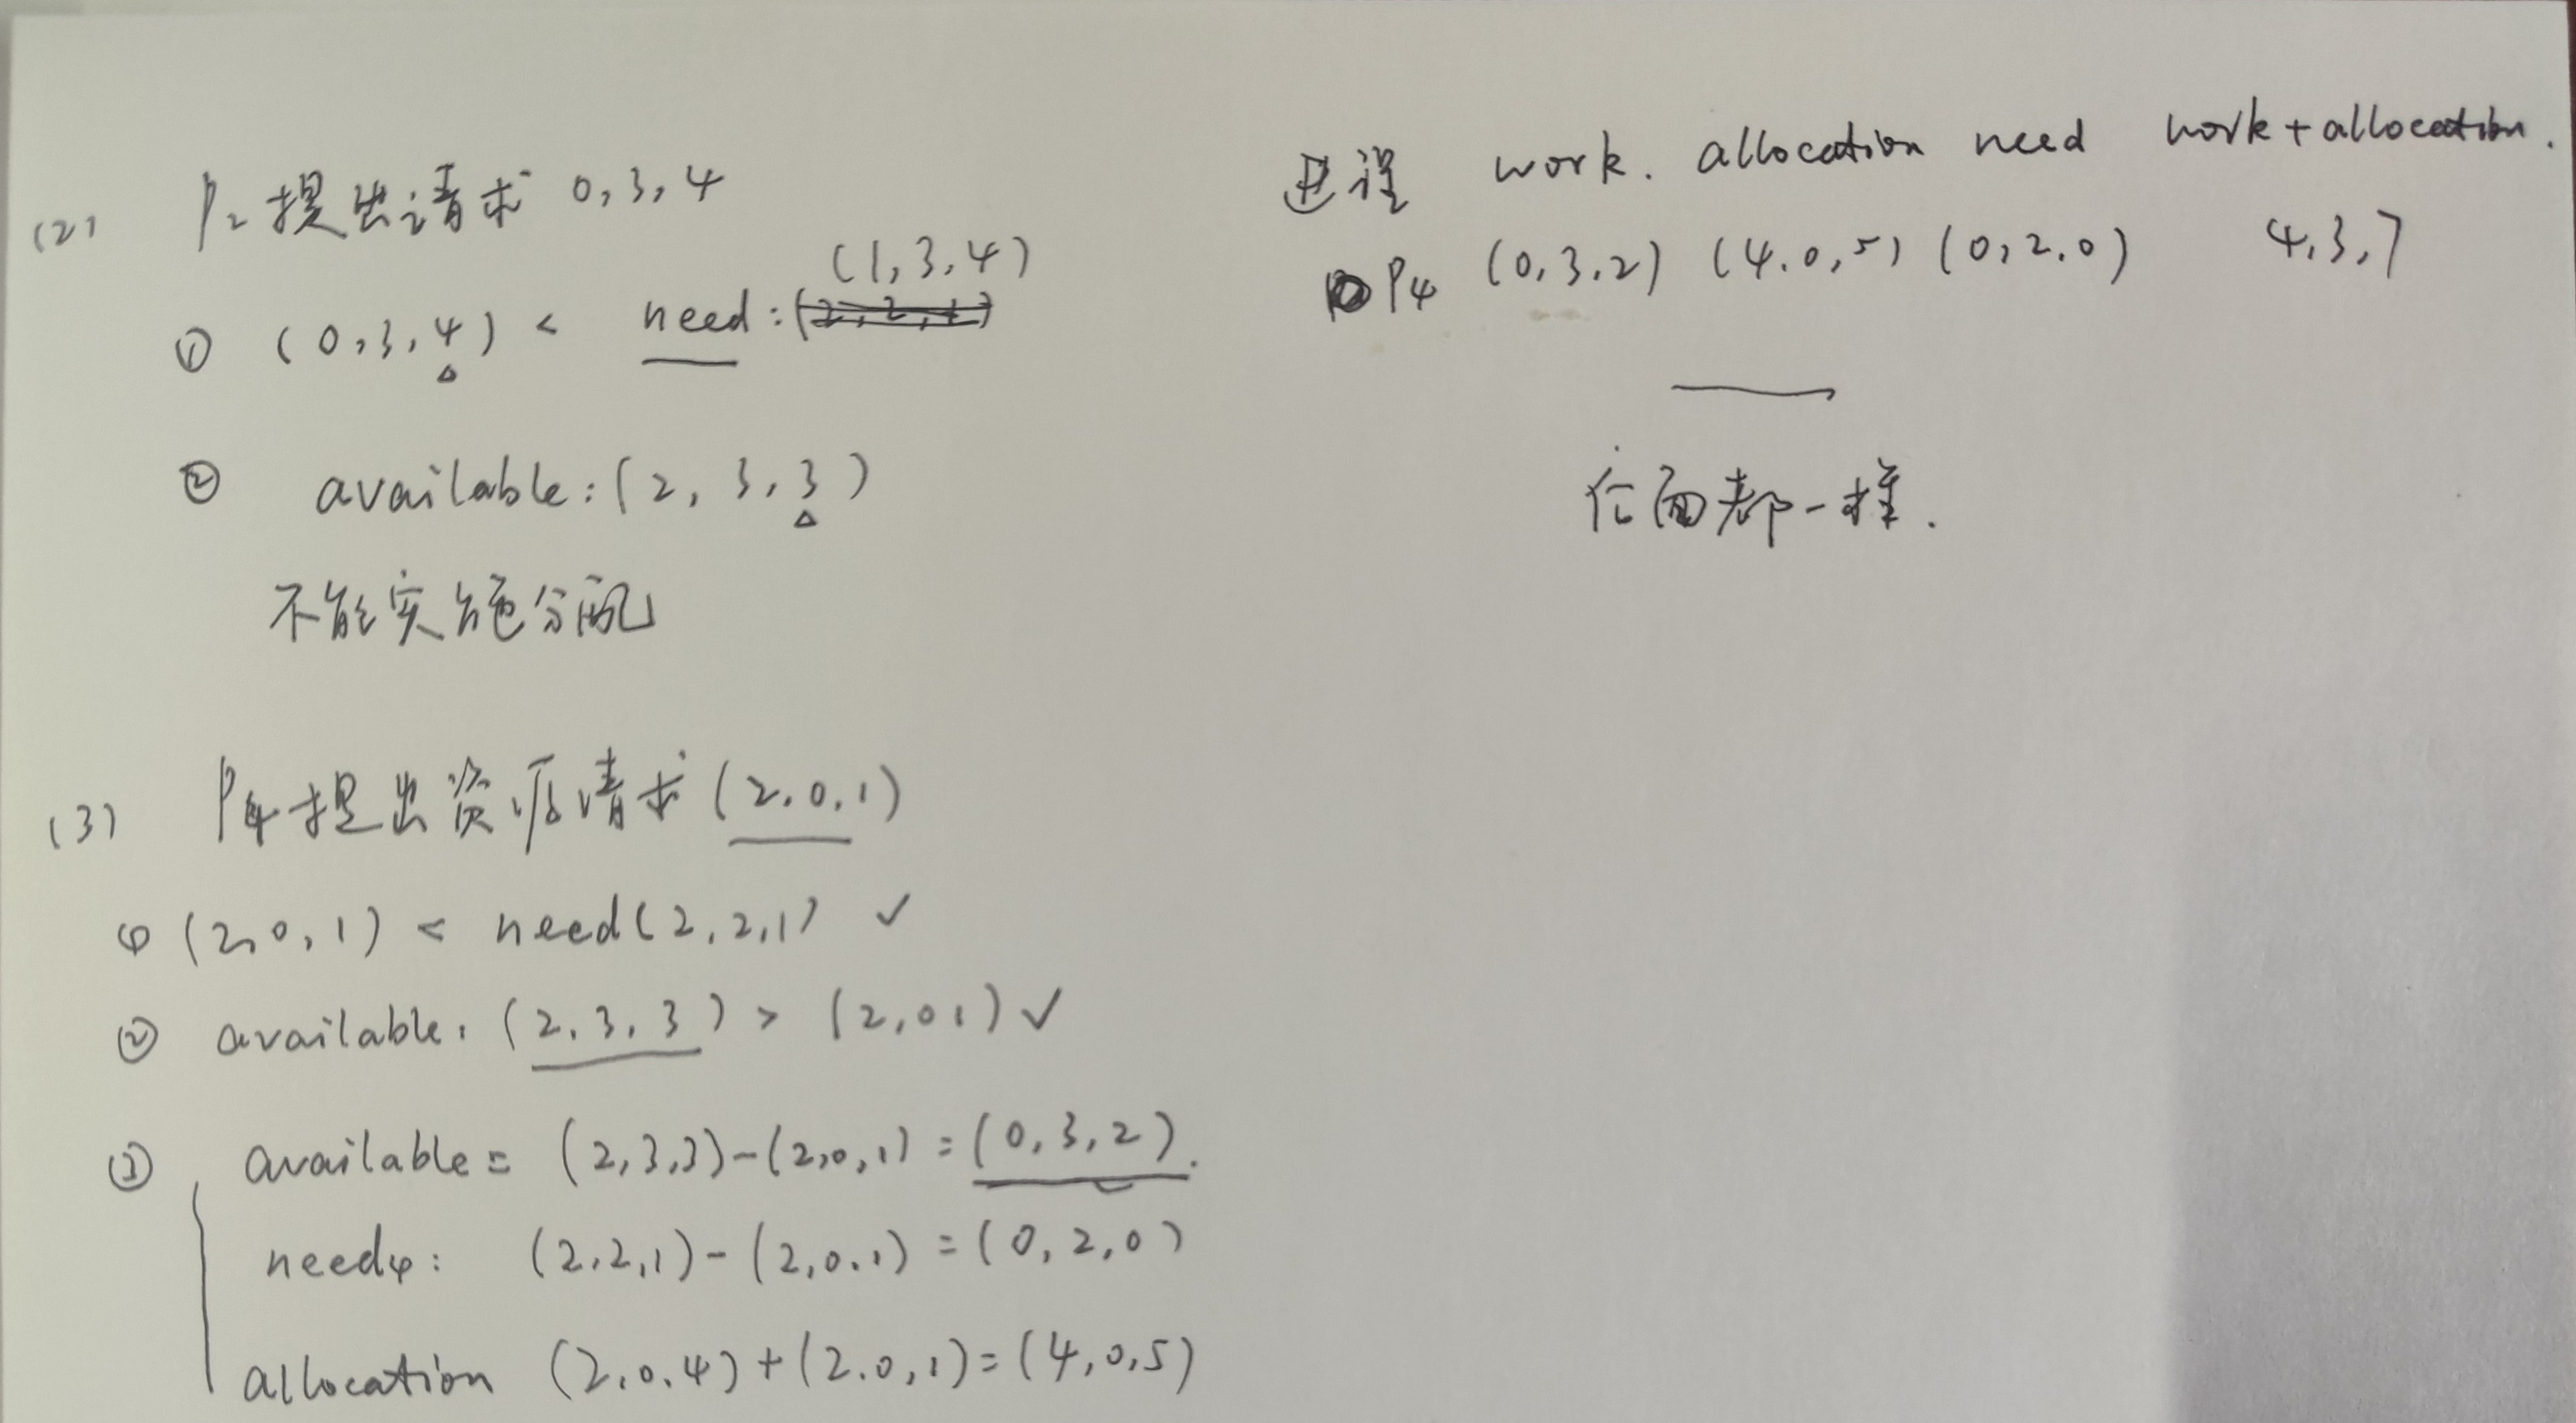 (2) P2提出请求 0,3,4
(1,3,4)
① (0,3,4) < need:
② available:(2,3,3)
不能实施分配
(3) P4提出资源请求(2.0.1)
① (2,0,1) < need(2,2,1) ✓
② available:(2.3.3) > (2,0 1) ✓
③ available= (2,3,3)-(2,0,1)=(0,3,2).
need4: (2,2,1)-(2,0.1)=(0,2,0)
allocation (2.0.4)+(2.0,1)=(4,0,5)
进程 work. allocation need work+allocation.
P4 (0,3.2) (4.0,5) (0,2.0) 4,3,7
后面都一样.